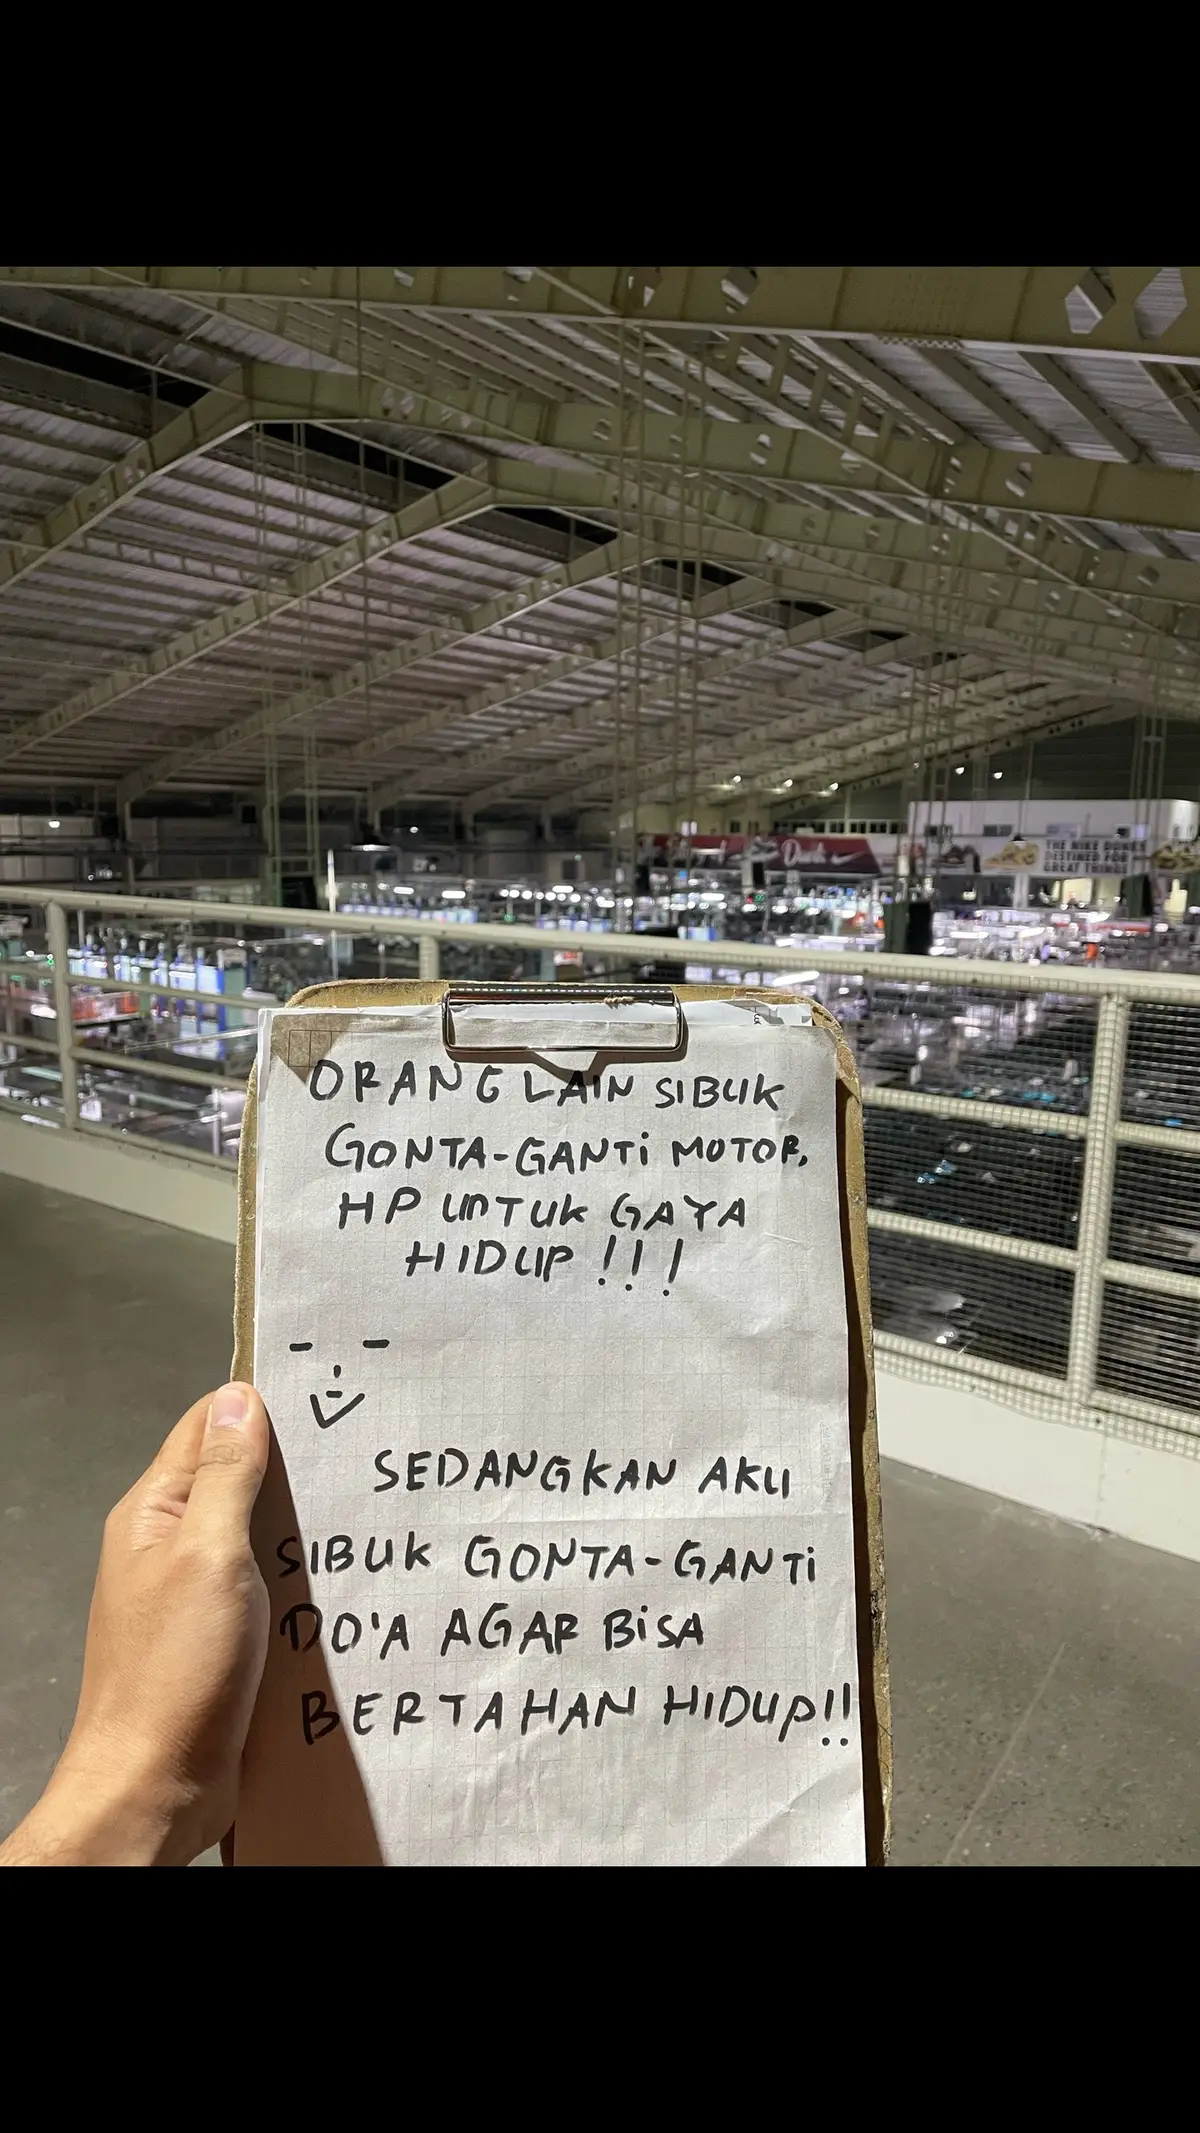 Dunk
THE NIKE DUNK
DESTINED FOR
GREAT THINGS
ORANG LAIN SIBUK
GONTA-GANTI MOTOR,
HP UNTUK GAYA
HIDUP!!!
SEDANGKAN AKU
SIBUK GONTA-GANTI
DO'A AGAR BISA
BERTAHAN HIDUP!!